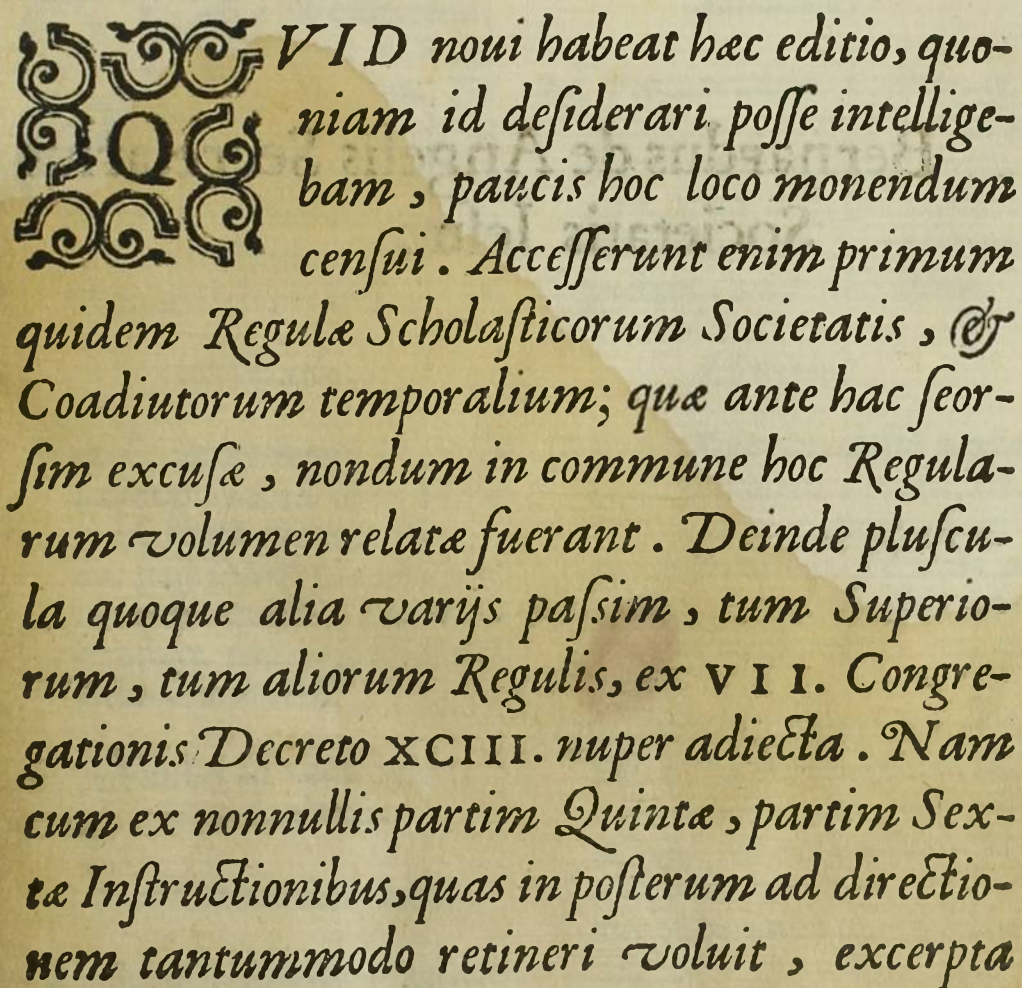 QVID noui habeat hæc editio, quo-
niam id deſiderari poſſe intellige-
bam, paucis hoc loco monendum
cenſui. Acceſſerunt enim primum
quidem Regulæ Scholaſticorum Societatis, &
Coadiutorum temporalium; quæ ante hac ſeor-
ſim excuſæ, nondum in commune hoc Regula-
rum volumen relatæ fuerant. Deinde pluſcu-
la quoque alia varijs paſsim, tum Superio-
rum, tum aliorum Regulis, ex VII. Congre-
gationis Decreto XCIII. nuper adiecta. Nam
cum ex nonnullis partim Quintæ, partim Sex-
tæ Inſtructionibus, quas in poſterum ad directio-
nem tantummodo retineri voluit, excerpta